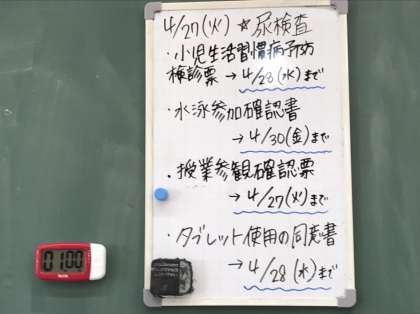 4/27(火) ☆尿検査
・小児生活習慣病予防
検診票 → 4/28(水)まで
・水泳参加確認書
→ 4/30(金)まで
・授業参観確認票
→ 4/27(火)まで
・タブレット使用の同意書
→ 4/28(水)まで
01:00